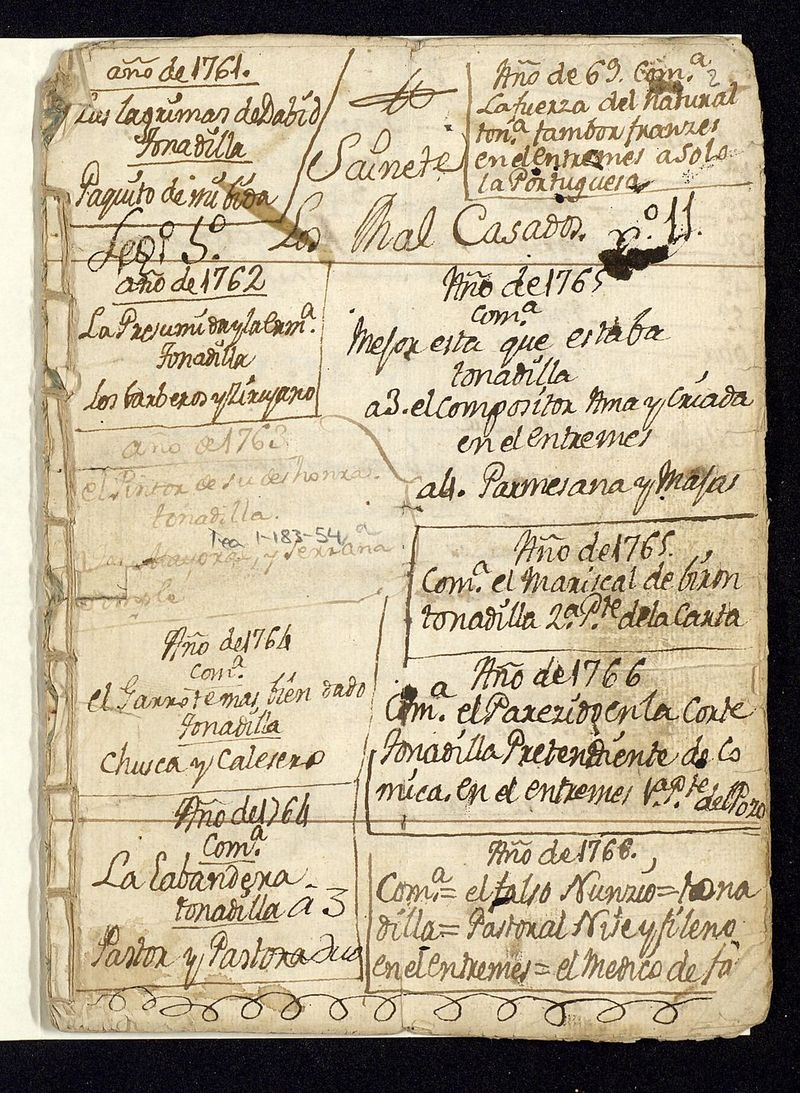 año de 1761.
Las lagrimas de Dabid
Tonadilla
Paquito de mi bida
Año de 69. Com.ª
2
La fuerza del Natural
ton.ª tambor franzes
en el entremes a solo
la Portuguesa
Sainete
Los Mal Casados. n.º 11.
Leg.º 5.º
año de 1762
La Presumida y la erm.ª
Tonadilla
los barberos y Zirujano
año de 1763
el Pintor de su deshonra.
tonadilla.
Tea 1-183-54, a
Las Mayoras, y Serrana
simple
Año de 1764
Com.ª
el Garrote mas bien dado
Tonadilla
Chusca y Calesero
Año de 1764
Com.ª
La Labandera
tonadilla â 3
Pastor y Pastora duo
Año de 1765
Com.ª
Mejor esta que estaba
tonadilla
a 3. el Compositor Ama y Criada
en el entremes
a 4. Parmesana y Majas
Año de 1765.
Com.ª el Mariscal de biron
tonadilla 2.ª P.te de la Carta
Año de 1766
Com.ª el Parezido en la Corte
Tonadilla Pretendiente de Co
mica. en el entremes 1.ª P.te del Pozo
Año de 1768.
Com.ª = el falso Nunzio = tona
dilla = Pastoral Nise y fileno
en el entremes = el Medico de fa